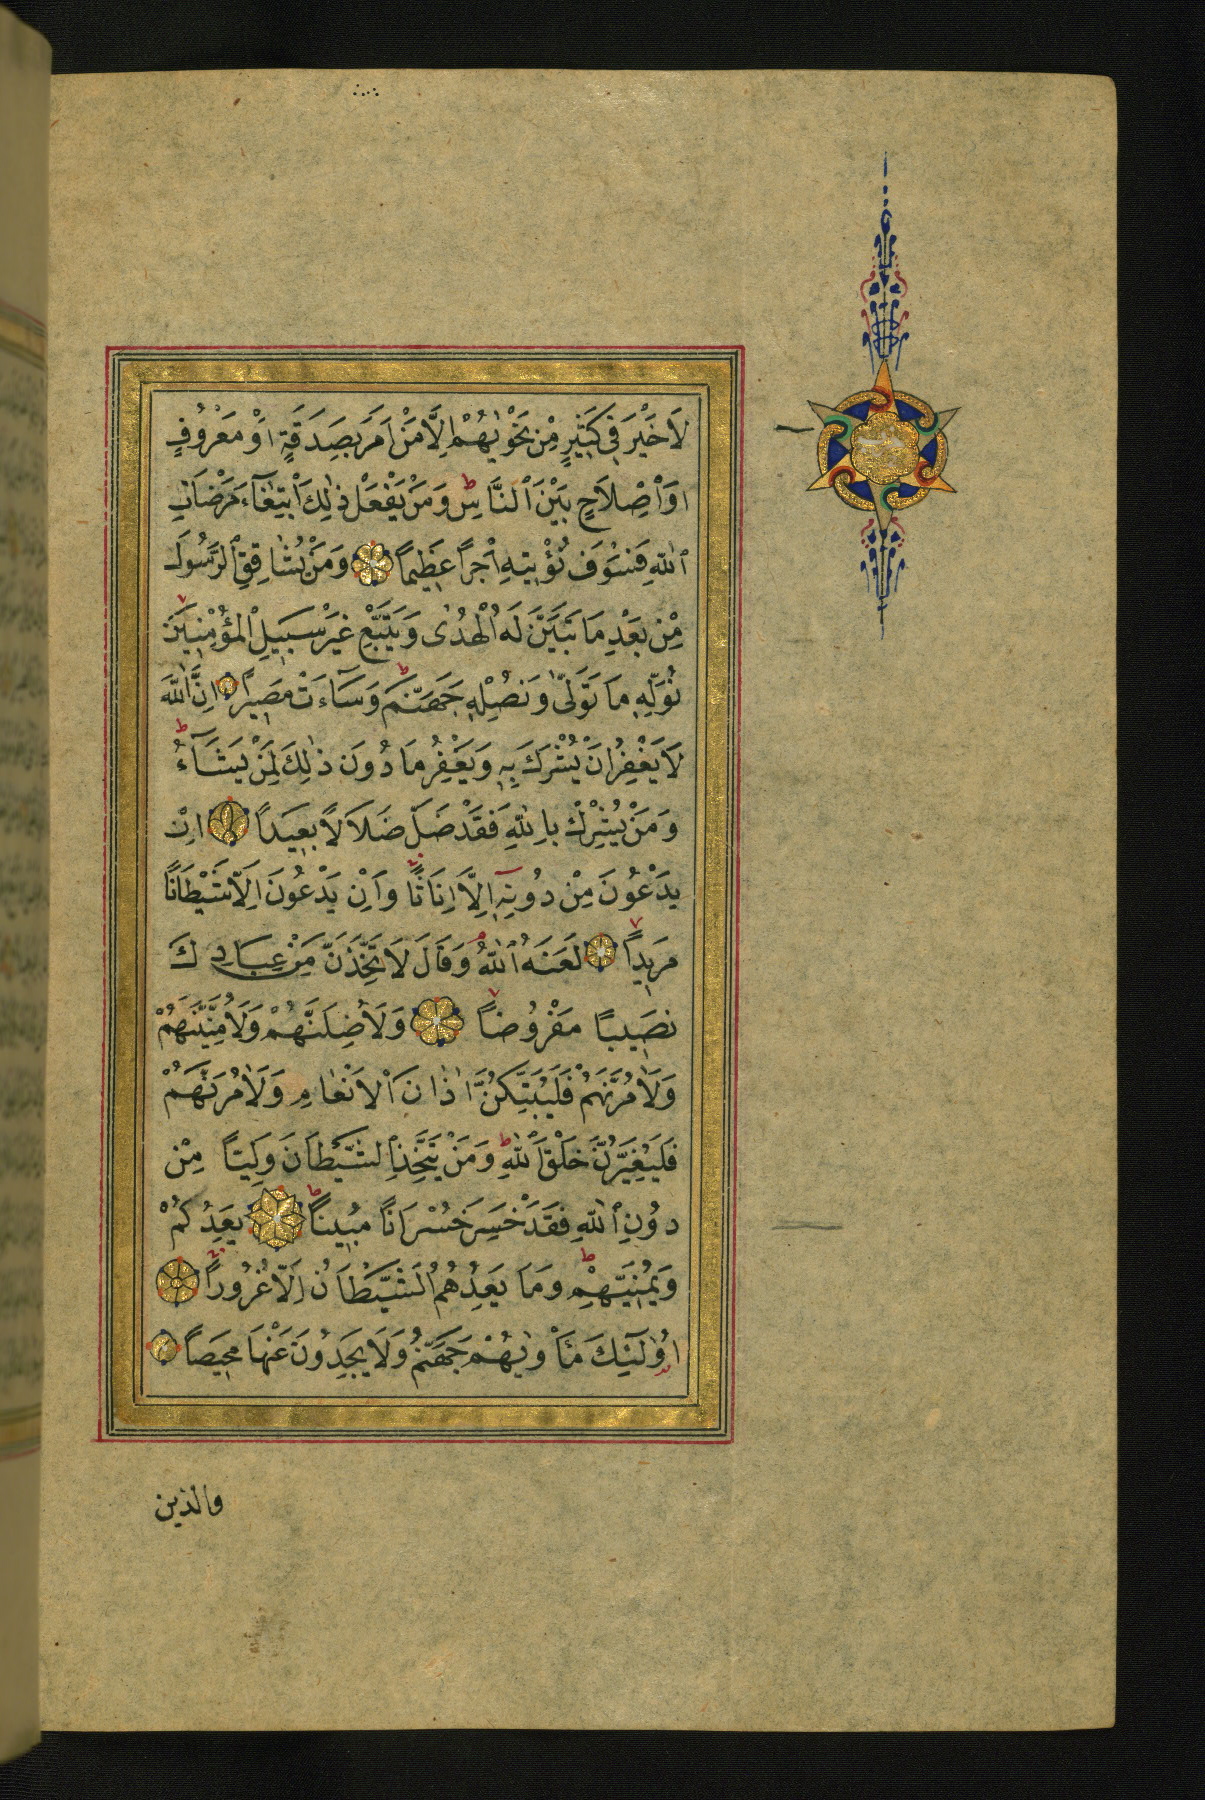 لَا خَيْرَ فِي كَثِيرٍ مِنْ نَجْوٰيهُمْ اِلَّا مَنْ اَمَرَ بِصَدَقَةٍ اَوْ مَعْرُوفٍ
اَوْ اِصْلَاحٍ بَيْنَ ٱلنَّاسِ ط وَمَنْ يَفْعَلْ ذٰلِكَ ٱبْتِغَآءَ مَرْضَاتِ
ٱللّٰهِ فَسَوْفَ نُؤْتِيهِ اَجْرًا عَظِيمًا وَمَنْ يُشَاقِقِ ٱلرَّسُولَ
مِنْ بَعْدِ مَا تَبَيَّنَ لَهُ ٱلْهُدٰى وَيَتَّبِعْ غَيْرَ سَبِيلِ ٱلْمُؤْمِنِينَ
نُوَلِّهِ مَا تَوَلّٰى وَنُصْلِهِ جَهَنَّمَ ط وَسَآءَتْ مَصِيرًا اِنَّ ٱللّٰهَ
لَا يَغْفِرُ اَنْ يُشْرَكَ بِهِ وَيَغْفِرُ مَا دُونَ ذٰلِكَ لِمَنْ يَشَآءُ ط
وَمَنْ يُشْرِكْ بِاللّٰهِ فَقَدْ ضَلَّ ضَلَالًا بَعِيدًا اِنْ
يَدْعُونَ مِنْ دُونِهِٓ اِلَّا اِنَاثًا وَاِنْ يَدْعُونَ اِلَّا شَيْطَانًا
مَرِيدًا لَعَنَهُ ٱللّٰهُ م وَقَالَ لَاَتَّخِذَنَّ مِنْ عِبَادِكَ
نَصِيبًا مَفْرُوضًا وَلَاُضِلَّنَّهُمْ وَلَاُمَنِّيَنَّهُمْ
وَلَاٰمُرَنَّهُمْ فَلَيُبَتِّكُنَّ اٰذَانَ ٱلْاَنْعَامِ وَلَاٰمُرَنَّهُمْ
فَلَيُغَيِّرُنَّ خَلْقَ ٱللّٰهِ ط وَمَنْ يَتَّخِذِ ٱلشَّيْطَانَ وَلِيًّا مِنْ
دُونِ ٱللّٰهِ فَقَدْ خَسِرَ خُسْرَانًا مُبِينًا ط يَعِدُهُمْ
وَيُمَنِّيهِمْ ط وَمَا يَعِدُهُمُ ٱلشَّيْطَانُ اِلَّا غُرُورًا
اُوۨلٰٓئِكَ مَأْوٰيهُمْ جَهَنَّمُ وَلَا يَجِدُونَ عَنْهَا مَحِيصًا
والذين